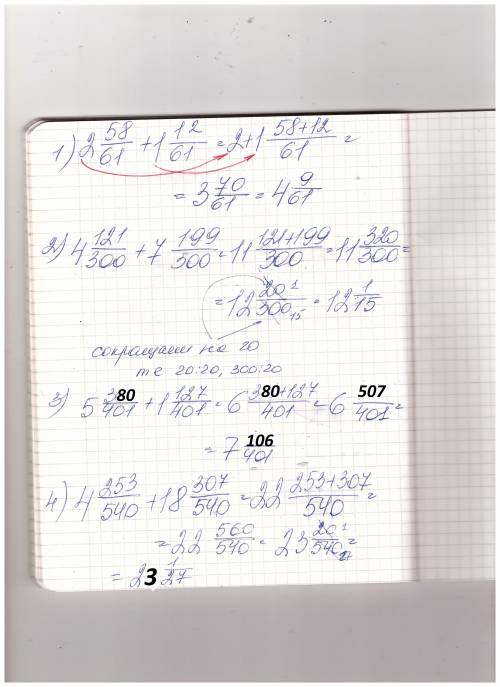 1) 2 58/61 + 1 12/61 = 2+1 58+12/61 =
= 3 70/61 = 4 9/61
2) 4 121/300 + 7 199/300 = 11 121+199/300 = 11 320/300 =
= 12 20 1/300 15 = 12 1/15
сокращаем на 20
т е 20:20, 300:20
3) 5 380/401 + 1 127/401 = 6 380+127/401 = 6 507/401 =
= 7 106/401
4) 4 253/540 + 18 307/540 = 22 253+307/540 =
= 22 560/540 = 23 20 1/540 27 =
= 23 1/27